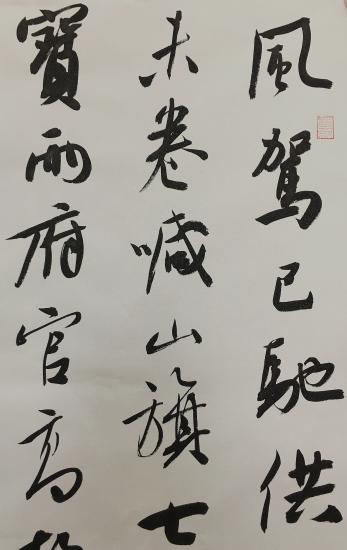 風駕已馳供
未卷喊山旗七
寶兩府官高